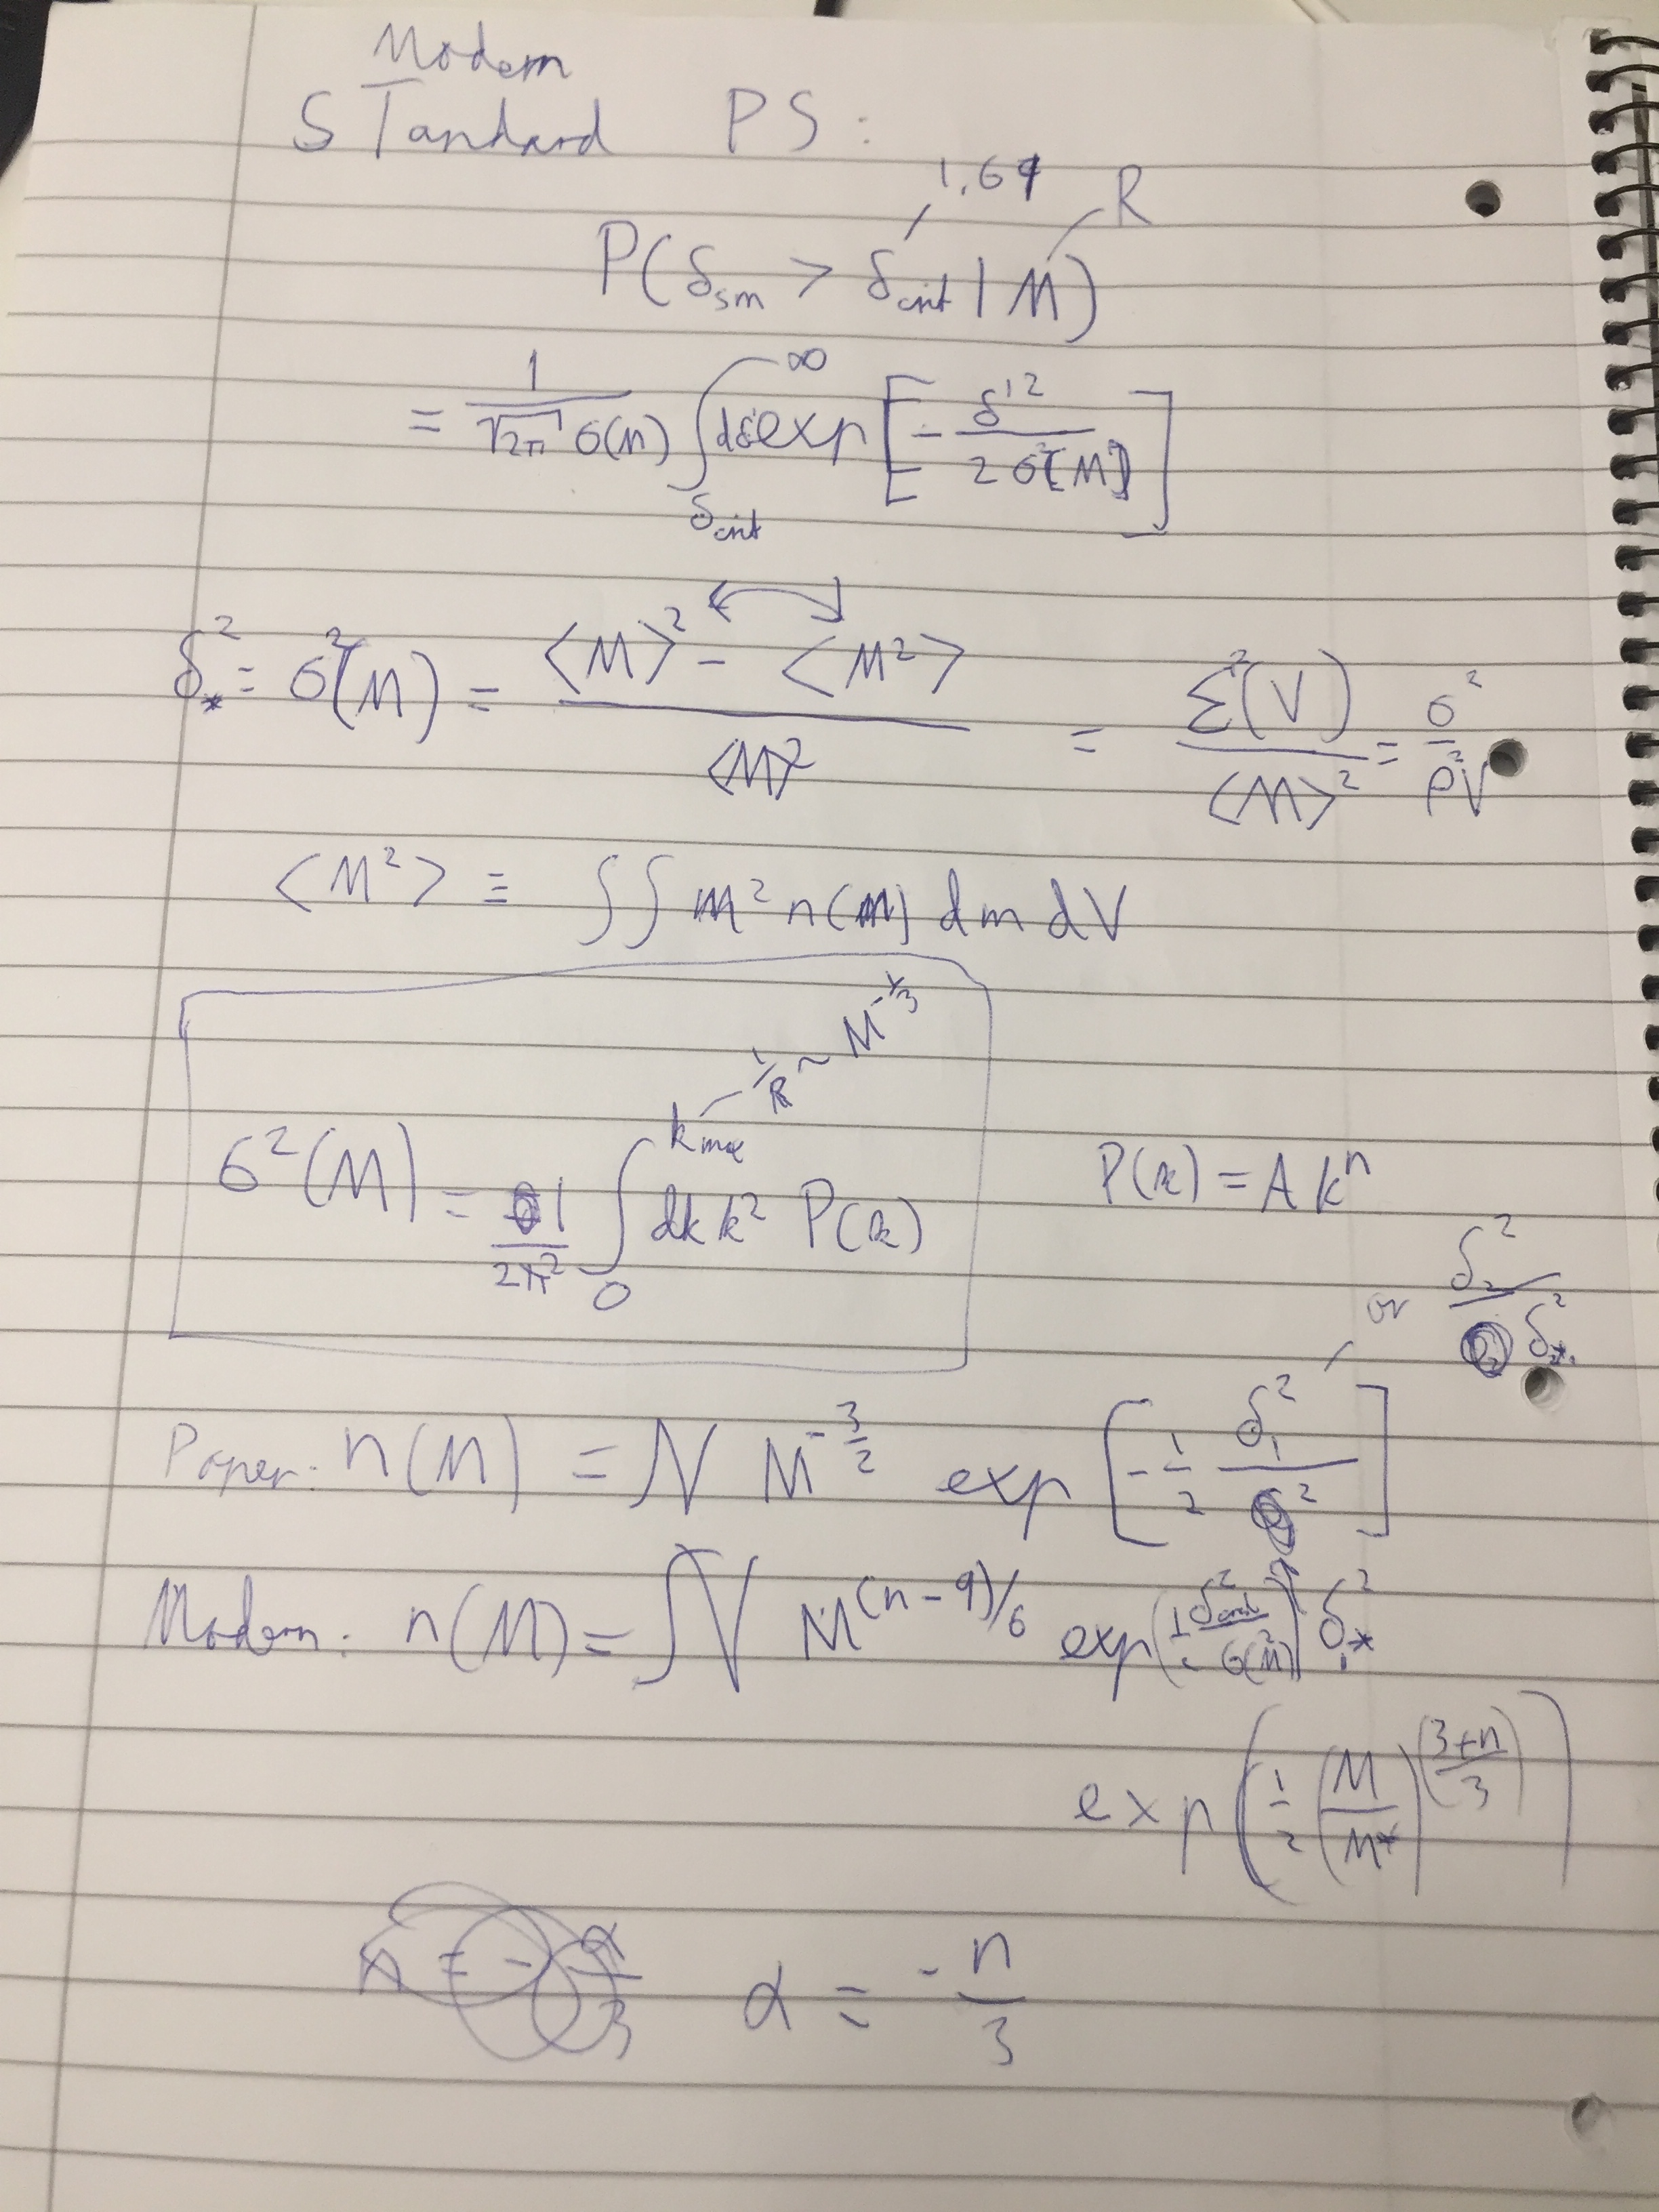 Modern
STandard PS:
1.69 R
P(δ_sm > δ_crit | M)
= 1/(√2π σ(M)) ∫_{δ_crit}^{∞} dδ' exp[-δ'^2/(2σ^2[M])]
δ_*^2 = σ^2(M) = (<M>^2 - <M^2>)/<M>^2 = Σ^2(V)/<M>^2 = σ^2/(ρ^2 V)
<M^2> ≡ ∫∫ m^2 n(m) dm dV
1/R ~ M^{-1/3}
σ^2(M) = 1/(2π^2) ∫_0^{k_max} dk k^2 P(k)
P(k) = A k^n
or δ_2^2/δ_{2*}^2
Paper: n(M) = N M^{-3/2} exp[-1/2 δ_1^2/ ^2]
δ_{1*}^2
Modern: n(M) = N M^{(n-9)/6} exp(1/2 δ_crit^2/σ^2(M))
exp(1/2 (M/M*)^{(3+n)/3})
n = -α/3 α = -n/3